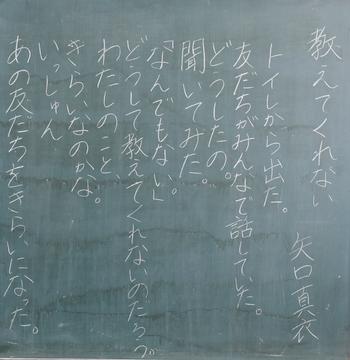 教えてくれない
矢口真衣
トイレから出た。
友だちがみんなで話していた。
どうしたの。
聞いてみた。
「なんでもない」
どうして教えてくれないのだろう。
わたしのこと、
きらいなのかな。
いっしゅん
あの友だちをきらいになった。